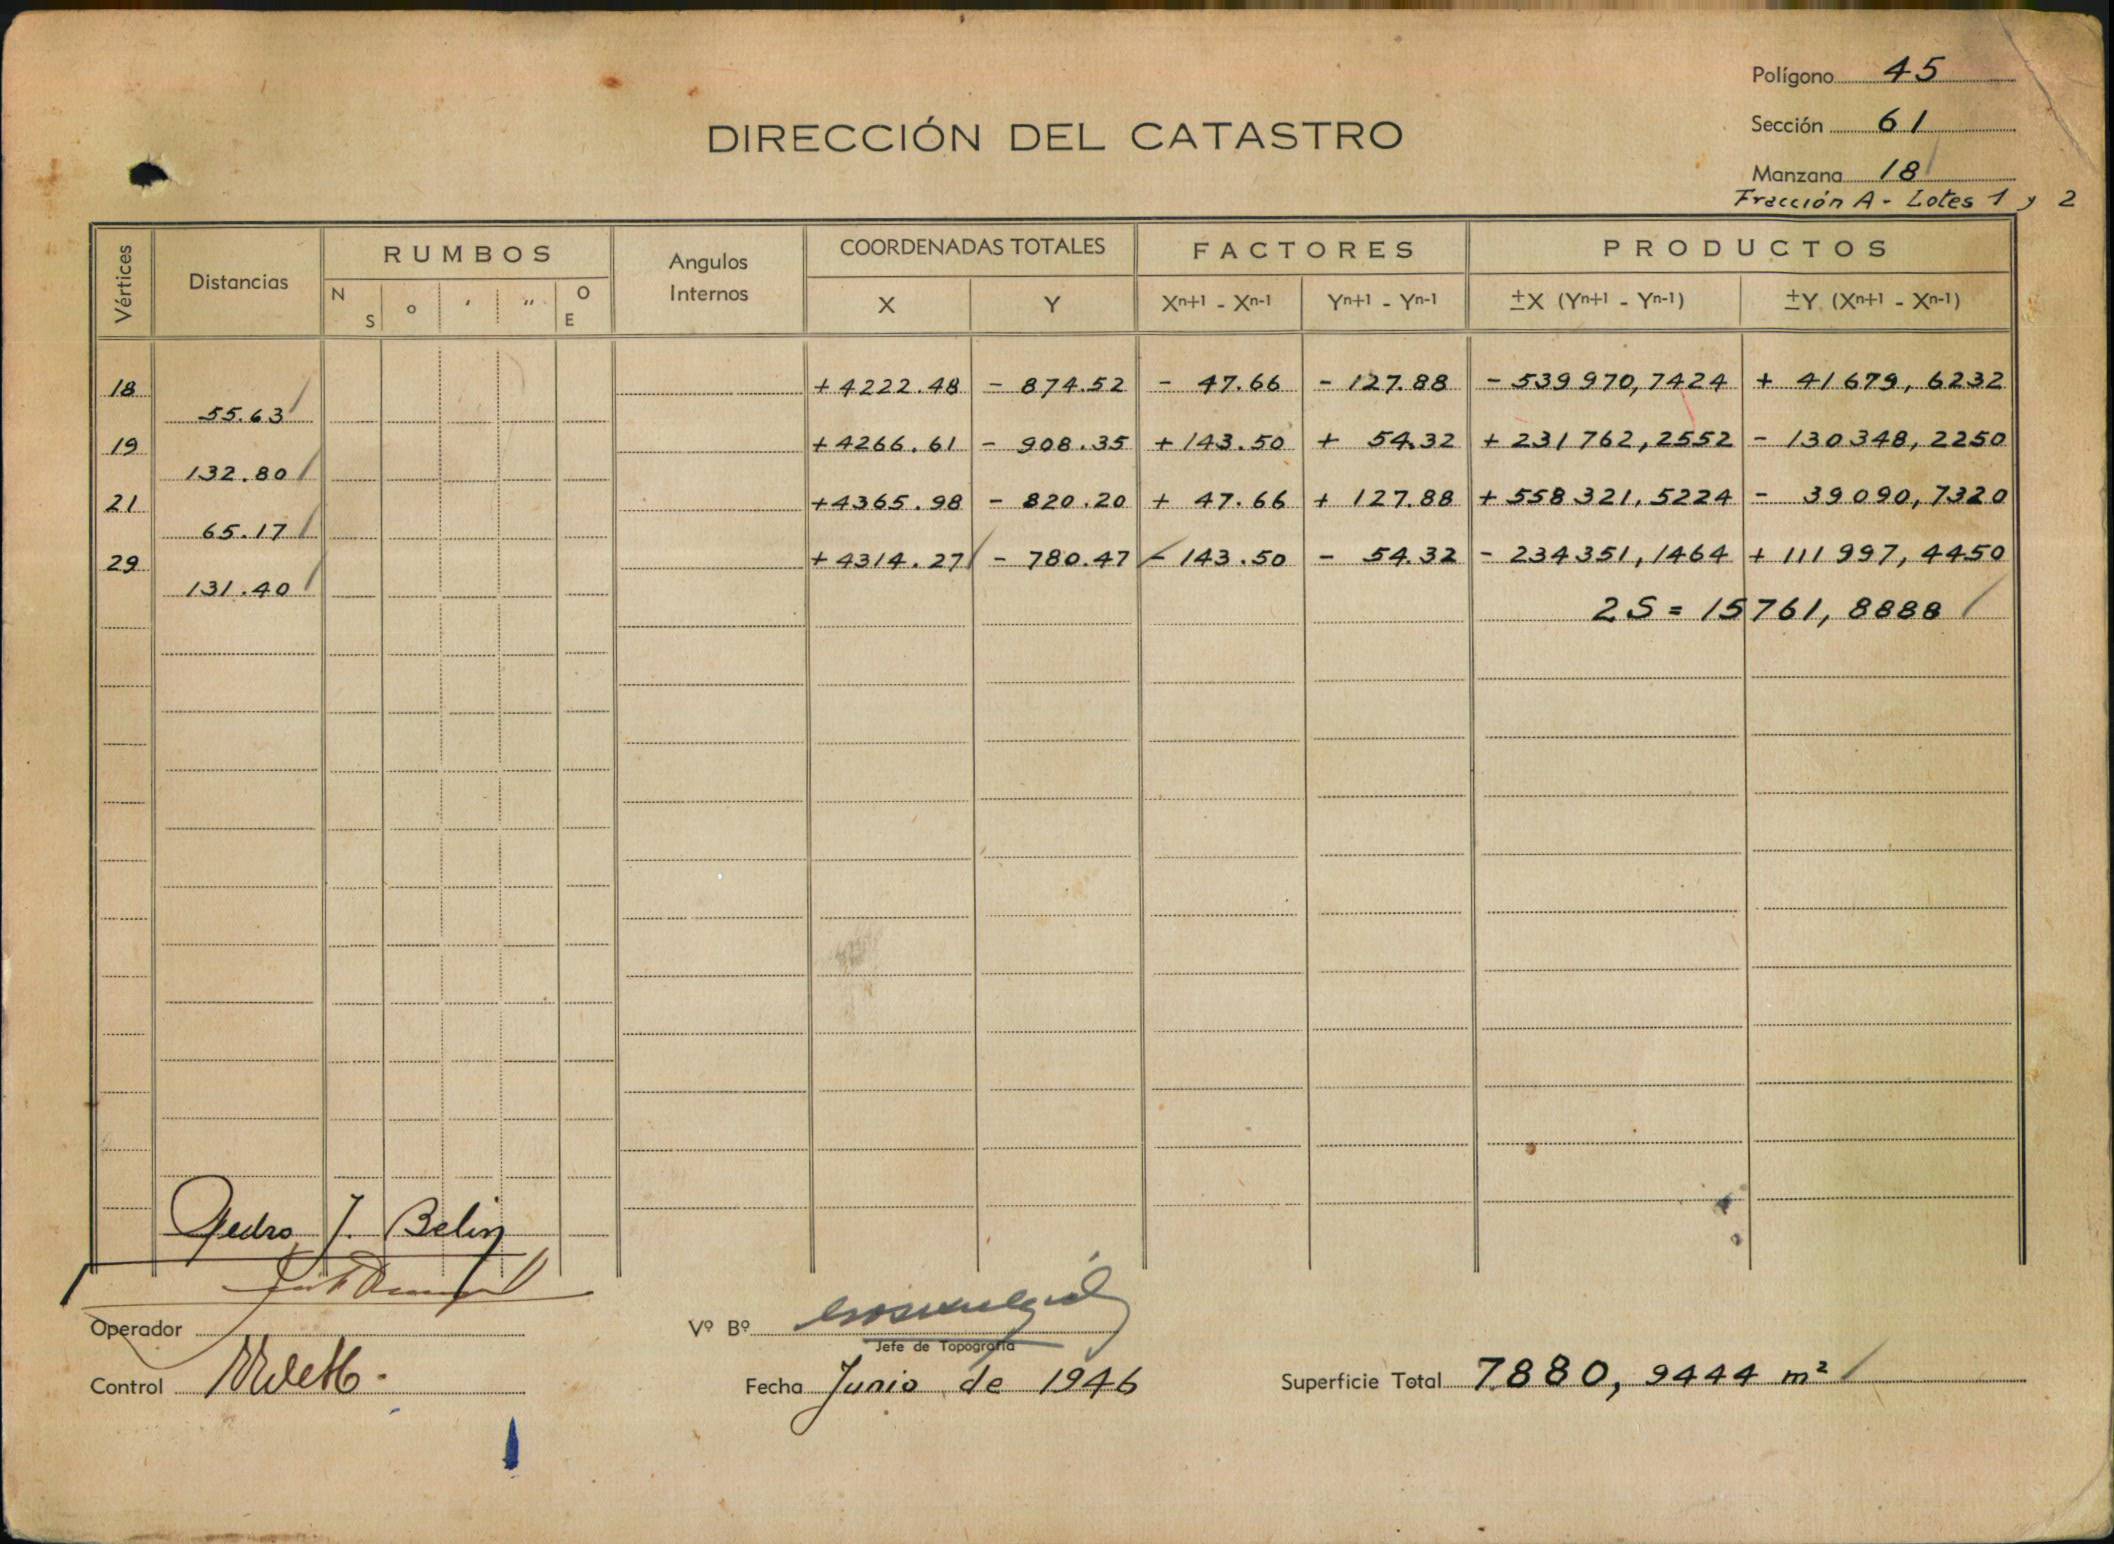 Polígono 45
Sección 61
Manzana 18
Fracción A - Lotes 1 y 2
DIRECCIÓN DEL CATASTRO
Vértices Distancias RUMBOS Angulos Internos COORDENADAS TOTALES FACTORES PRODUCTOS
N S o ' " O E X Y Xn+1 - Xn-1 Yn+1 - Yn-1 ±X (Yn+1 - Yn-1) ±Y (Xn+1 - Xn-1)
18 +4222.48 - 874.52 - 47.66 - 127.88 - 539970,7424 + 41679,6232
55.63
19 +4266.61 - 908.35 + 143.50 + 54.32 + 231762,2552 - 130348,2250
132.80
21 +4365.98 - 820.20 + 47.66 + 127.88 + 558321,5224 - 39090,7320
65.17
29 +4314.27 - 780.47 - 143.50 - 54.32 - 234351,1464 + 111997,4450
131.40
2S = 15761,8888
Pedro J. Belin
Operador
Vº Bº
Jefe de Topografía
Control
Fecha Junio de 1946
Superficie Total 7880,9444 m²